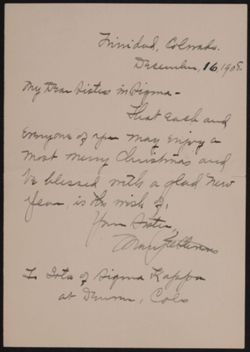 Trinidad, Colorado.
December, 16, 1908.
My Dear Sisters in Sigma-
That each and
everyone of you may enjoy a
most merry Christmas and
be blessed with a glad New
Year is the wish of,
Your Sister,
Mary
To Iota of Sigma Kappa
at Denver, Colo